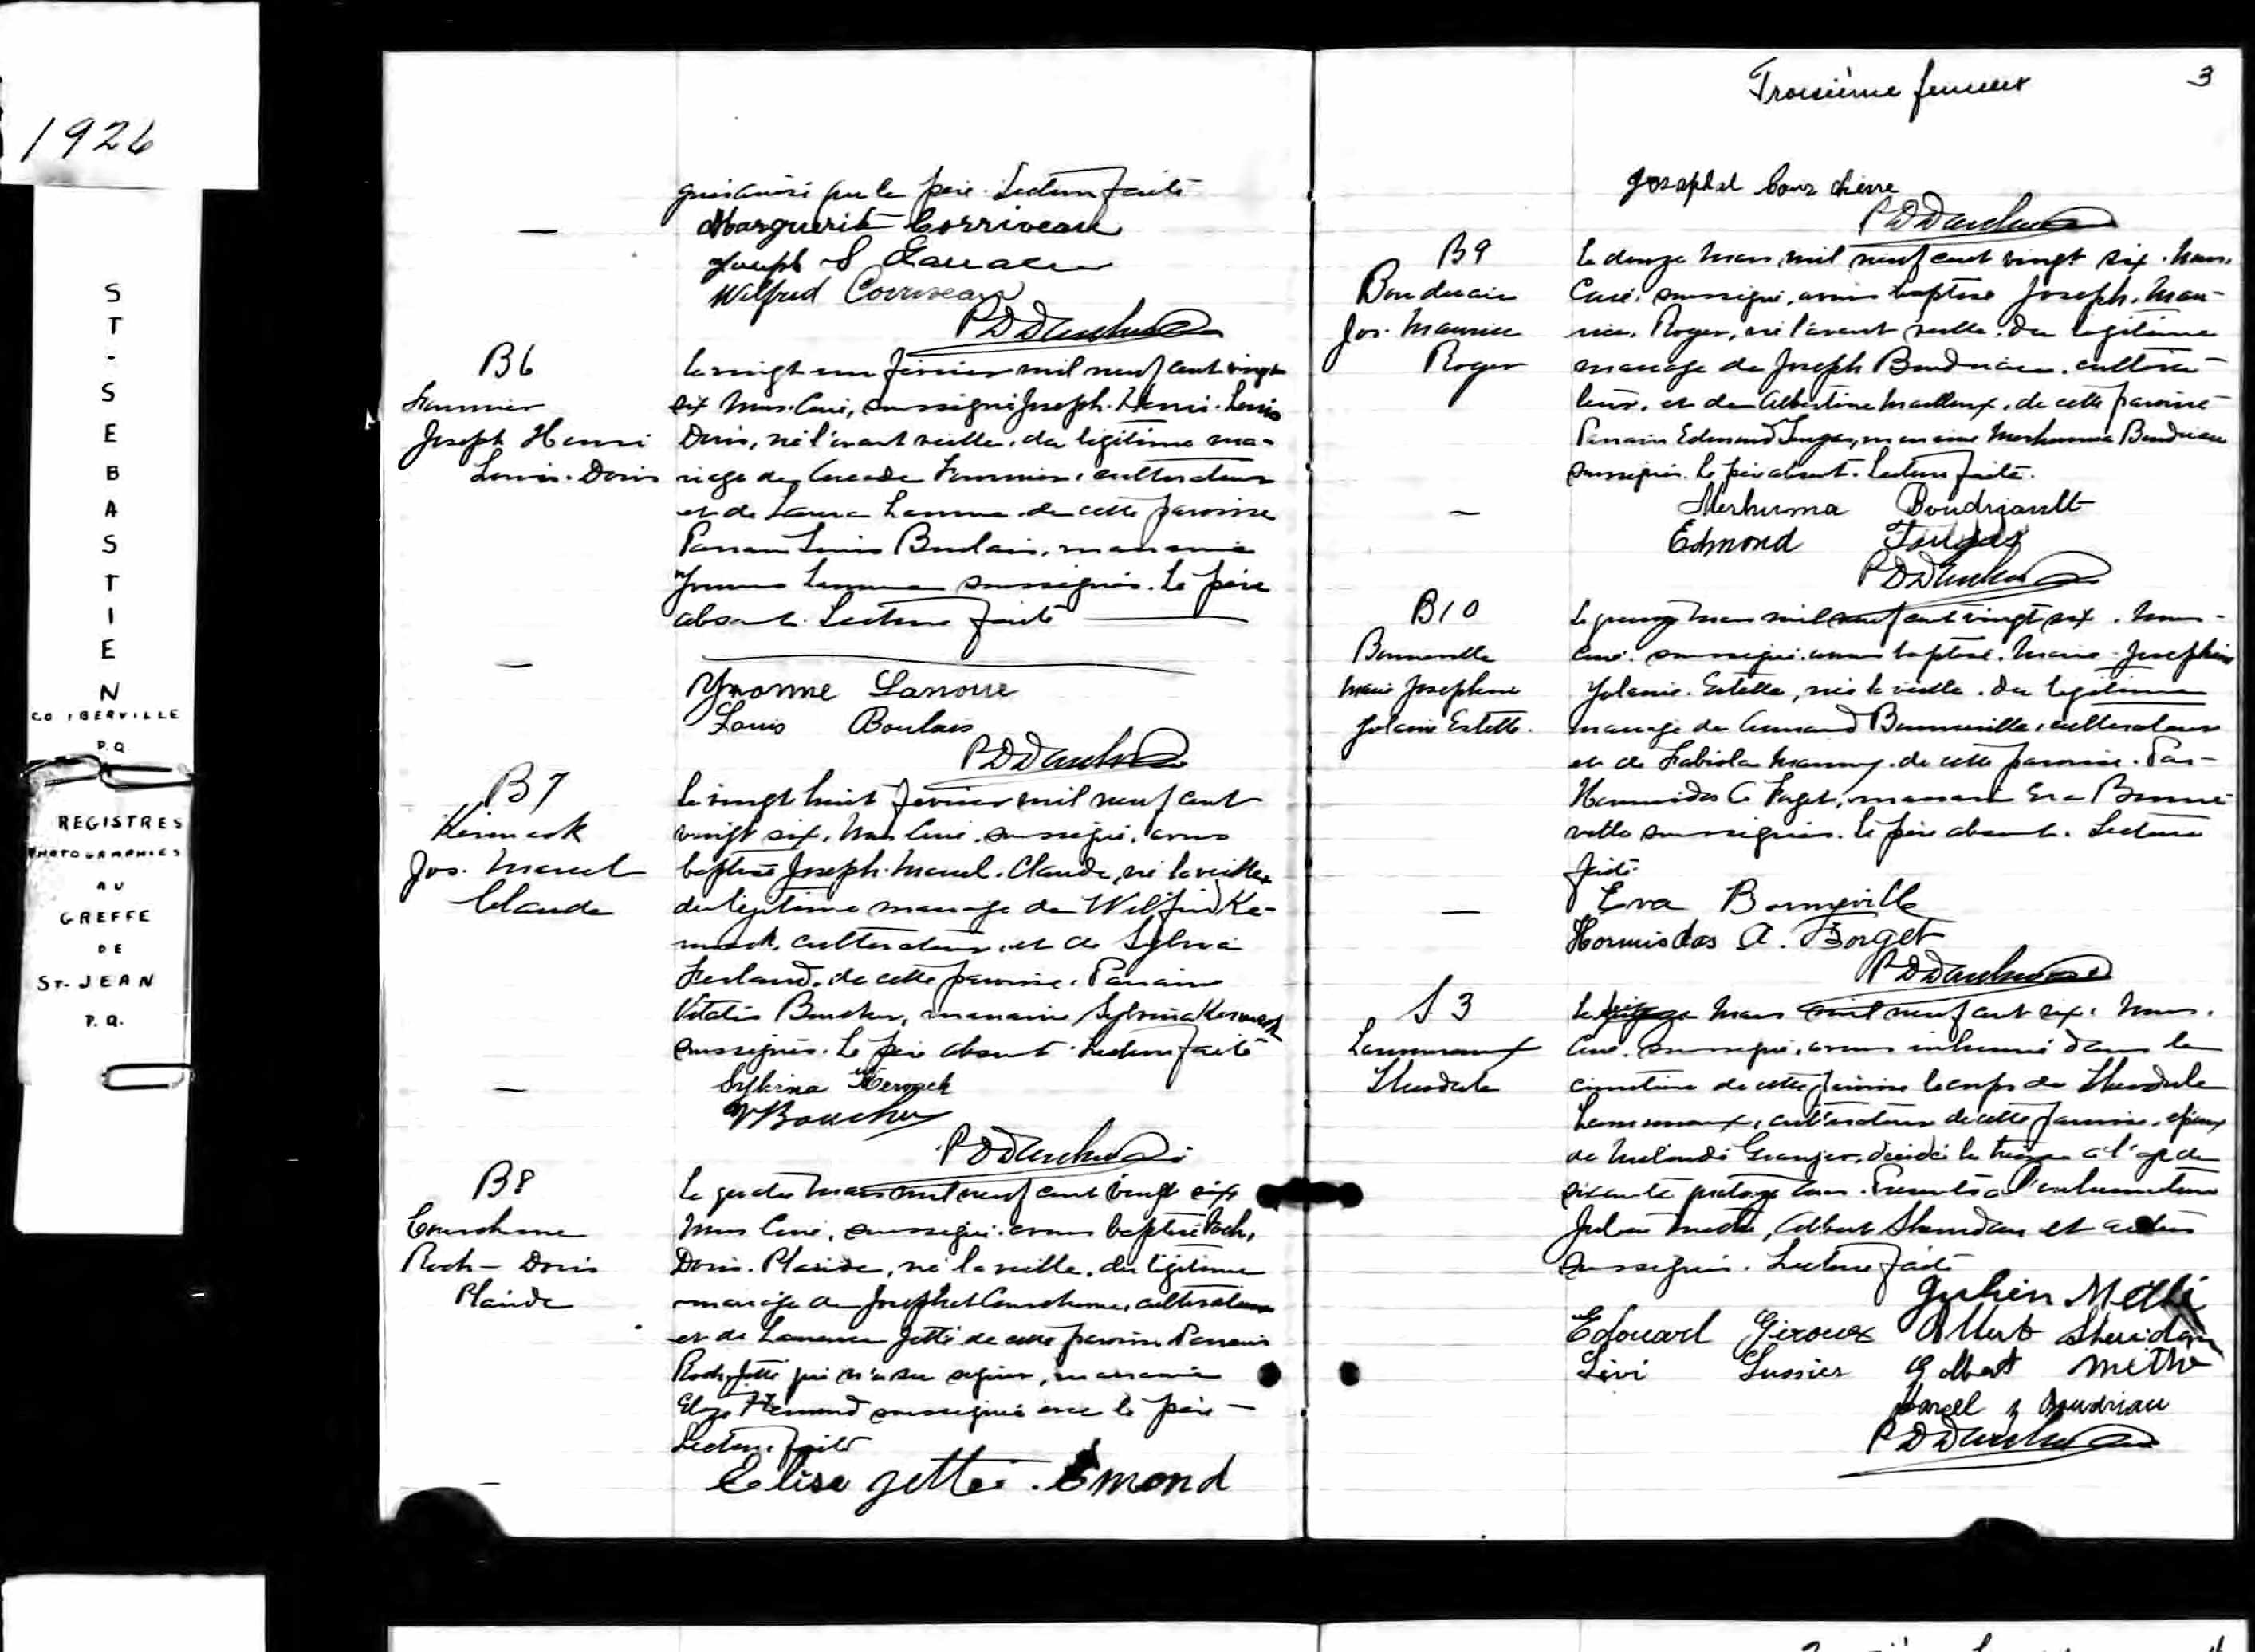 1926
ST-SEBASTIEN
CO. IBERVILLE
P.Q.
REGISTRES
PHOTOGRAPHIES
AU
GREFFE
DE
ST-JEAN
P.Q.
par le père. Lecture faite
Marguerite Corriveau
Joseph S
Wilfrid Corriveau
B6
Fournier
Joseph Henri
Louis-Doris
Le vingt un février mil neuf cent vingt
six Nous Curé, soussigné Joseph. Henri. Louis
Doris, né l'avant veille, du légitime ma-
riage de Fournier, cultivateur
et de Laura Lanoue de cette paroisse
Parrain Louis Boulais, marraine
Yvonne Lanoue soussignés. Le père
absent. Lecture faite
Yvonne Lanoue
Louis Boulais
B7
Kermack
Jos. Marcel
Claude
Le vingt huit février mil neuf cent
vingt six, Nous Curé, soussigné, avons
baptisé Joseph. Marcel. Claude, né la veille,
du légitime mariage de Wilfrid Ker-
mack, cultivateur, et de Sylvia
Ferland, de cette paroisse. Parrain
Boucher, marraine Sylvina Kermack
soussignés. Le père absent. Lecture faite
Sylvina Kermack
V Boucher
B8
Courchesne
Roch-Doris
Placide
Le quatre mars mil neuf cent vingt six
Nous Curé, soussigné avons baptisé Roch,
Doris. Placide, né la veille, du légitime
mariage de Josephat Courchesne, cultivateur
et de Jetté de cette paroisse Parrain
Roch Jetté qui n'a su signer, marraine
Emond soussignée avec le père
Lecture faite
Elise Jetté. Emond
Troisième feuillet
3
Josephat Courchesne
B9
Boudriau
Jos. Maurice
Roger
Le douze mars mil neuf cent vingt six. Nous
Curé, soussigné, avons baptisé Joseph. Mau-
rice. Roger, né l'avant veille, du légitime
mariage de Joseph Boudriau, cultiva-
teur, et de Albertine Mailloux, de cette paroisse
Parrain Edmond, marraine Boudriau
soussignés. Le père absent. Lecture faite.
Boudriault
Edmond
B10
Bonneville
Marie Josephine
Yolaine Estelle.
Le mars mil neuf cent vingt six. Nous
Curé, soussigné, avons baptisé. Marie-Josephine
Yolaine. Estelle, née la veille, du légitime
mariage de Armand Bonneville, cultivateur
et de Fabiola, de cette paroisse. Par-
Hormisdas A Forget, marraine Eva Bonne-
ville soussignés. Le père absent. Lecture
faite
Eva Bonneville
Hormisdas A. Forget
S3
Lamoureux
Theodule
Le mars mil neuf cent six. Nous.
Curé, soussigné, avons inhumé dans le
cimetière de cette paroisse le corps de Theodule
Lamoureux, cultivateur de cette paroisse, époux
de Granger, décédé le treize a l'age de
soixante ans. Présents a l'inhumation
Julien Methé, Albert Sheridan et autres
soussignés. Lecture faite
Julien Methé
Edouard Giroux Albert Sheridan
Lévi Lussier Methé
Marcel Boudriau